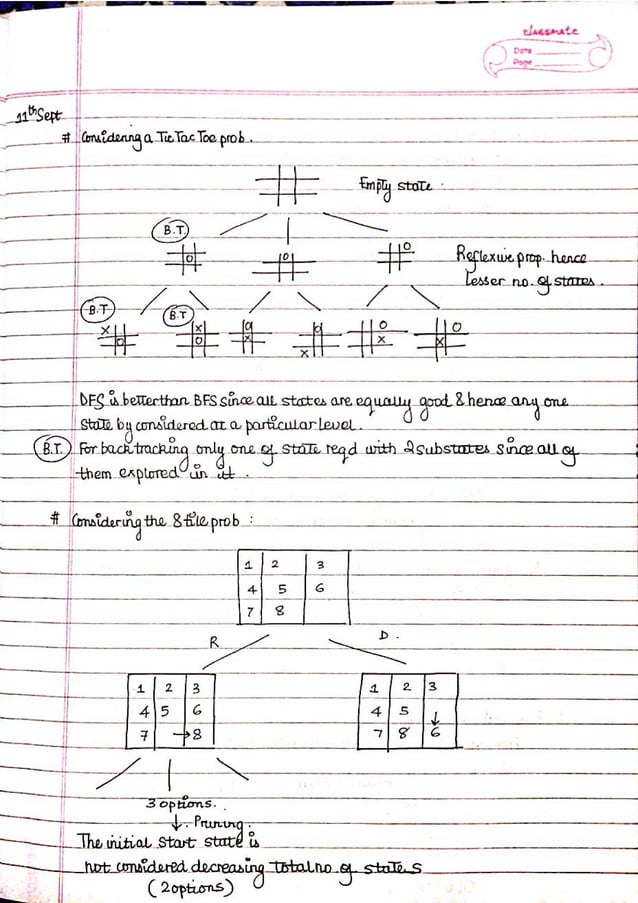 classmate
Date
Page
11th Sept
# Considering a Tic Tac Toe prob.
Empty state.
B.T
O
O
O
Reflexive prop. hence
lesser no. of states.
B.T
X
O
B.T
X
O
O
X
O
X
O
X
O
X
DFS is better than BFS since all states are equally good & hence any one
state by considered at a particular level.
B.T. For backtracking only one of state reqd with 2 substates since all of
them explored in it.
# Considering the 8 tile prob :
1 2 3
4 5 6
7 8
R D.
1 2 3
4 5 6
7 → 8
1 2 3
4 5 ↓
7 8 6
3 options.
↓. Pruning.
The initial start state is
not considered decreasing total no. of states
(2 options)